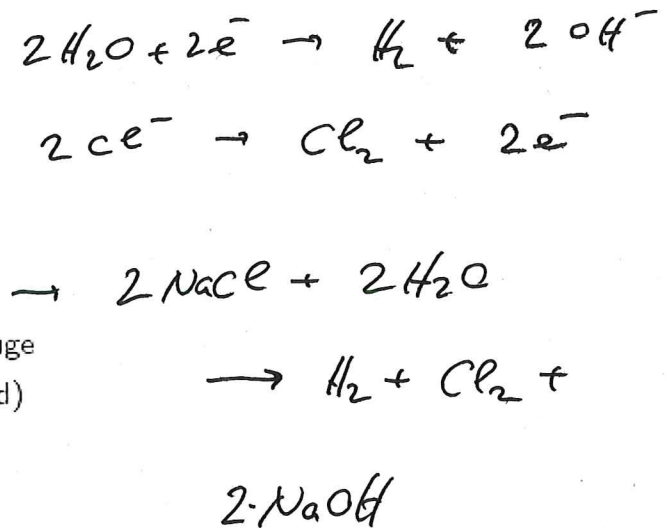 2H₂O + 2e⁻ → H₂ + 2 OH⁻
2 Cl⁻ → Cl₂ + 2e⁻
→ 2 NaCl + 2H₂O
uge
→ H₂ + Cl₂ +
d)
2·NaOH